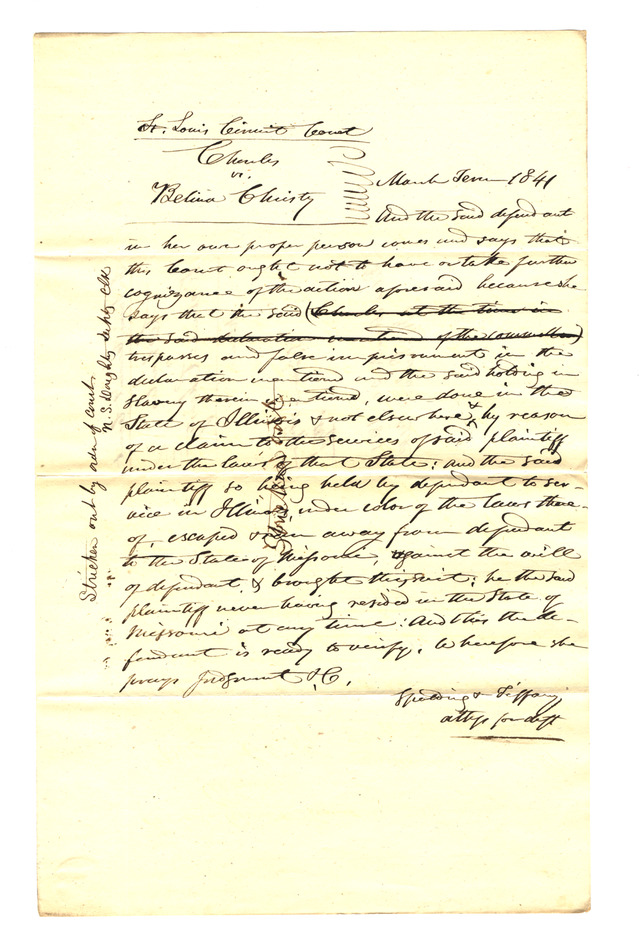 St. Louis Circuit Court
Charles
vs.
Belina Christy
March Term 1841
And the said defendant
in her own proper person comes and says that
this Court ought not to have or take further
cognizance of the action aforesaid because she
says that the said (Charles at the time in
the said declaration mentioned of the committing)
trespasses and false imprisonment in the
declaration mentioned and the said holding in
Slavery therein mentioned, were done in the
State of Illinois & not elsewhere, & by reason
of a claim to the services of said plaintiff
under the laws of that State: and the said
plaintiff so being held by defendant to ser-
vice in Illinois, under color of the laws there-
of, escaped & ran away from defendant
to the State of Missouri, against the will
of defendant, & brought this suit; he the said
plaintiff never having resided in the State of
Missouri at any time: And this the de-
fendant is ready to verify. Wherefore she
prays judgment &C.
Spalding & Tiffany
attys for deft
Stricken out by order of Court
N. S. Wright, Depty Clk